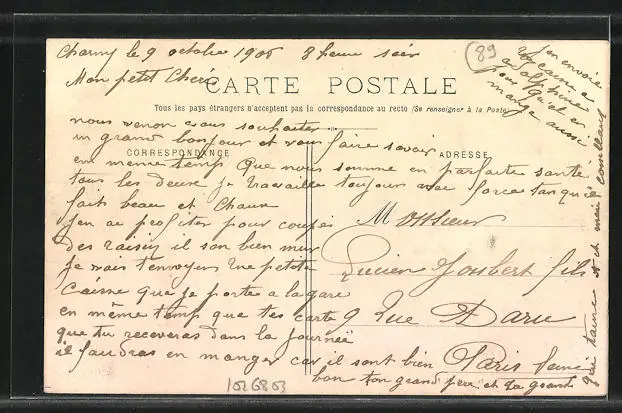 Charny le 9 octobre 1906 8 heure soir
Mon petit Cheri
CARTE POSTALE
Tous les pays étrangers n'acceptent pas la correspondance au recto (Se renseigner à la Poste)
nous venon vous souhaiter
un grand bonjour et vous faire savoir
CORRESPONDANCE
ADRESSE
em meme temp que nous somme en parfaite sante
tous les deux je travaille toujour avec force tan qu'il
fait beau et Chaux
j'en ai profiter pour coupér
des raisin il son bien mur
je vais t'envoyer une petite
Caisse que je porte a la gare
en même temp que tes carte
que tu receveras dans la journeé
il faudras en manger car il sont bien
bon ton grand pere et ta grand
mere
qui t'aime
Monsieur
Lucien Joubert fils
9 Rue Daru
Paris Seine
j'en envoie
a alphine
pour qu'el en
mange aussi
89
1026803